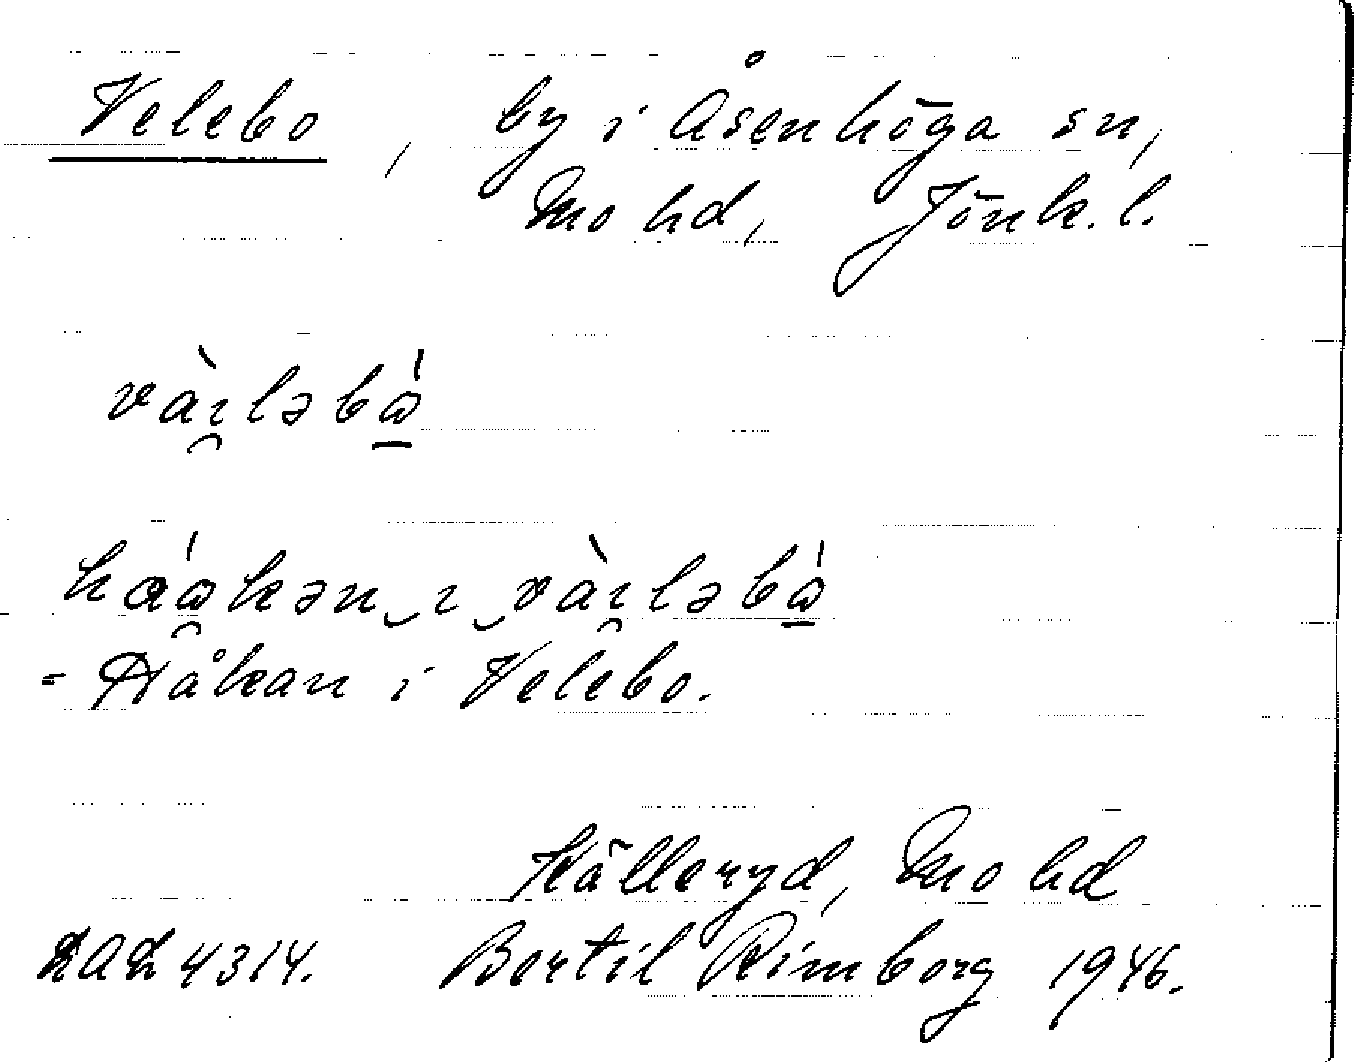 Velebo, by i Åsenhöga sn,
Mo hd, Jönk. l.
vàɩləbɷ́
háɷkən‿ɩ‿vàɩləbɷ́
= Håkan i Velebo.
Källeryd, Mo hd
4314. Bertil Rimborg 1946.